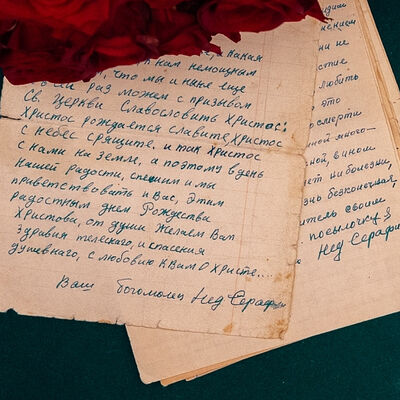 и какая
нам немощным
что мы и ныне еще
раз можем с призывом
Св. Церкви Славословить Христос:
Христос рождается славите, Христос
с небес срящите, и так Христос
с нами на земле, а поэтому в день
нашей радости, спешим и мы
приветствовать и Вас, этим
радостным днем Рождества
Христова, от души желаем Вам
здравия телесного, и спасения
душевного, с любовию к Вам о Христе....
Ваш богомолец Нед Серафим
нением
ни не
стие
любить
это
смерти
ной много-
ной, виною
ет ни болезни,
безконечная,
итель своим
посылочку
Нед Серафи